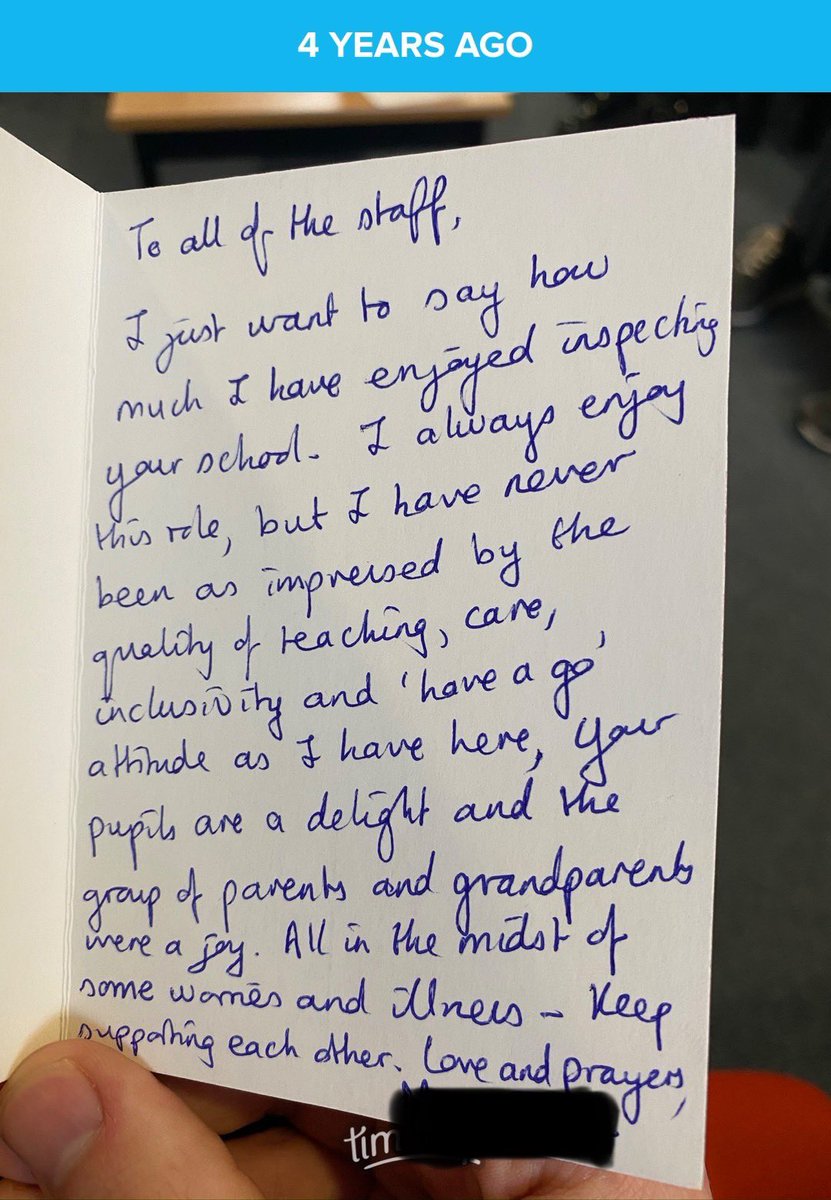 4 YEARS AGO
To all of the staff,
I just want to say how
much I have enjoyed inspecting
your school. I always enjoy
this role, but I have never
been as impressed by the
quality of teaching, care,
inclusivity and 'have a go'
attitude as I have here, Your
pupils are a delight and the
group of parents and grandparents
were a joy. All in the midst of
some worries and illness - Keep
supporting each other. Love and prayers,
tim